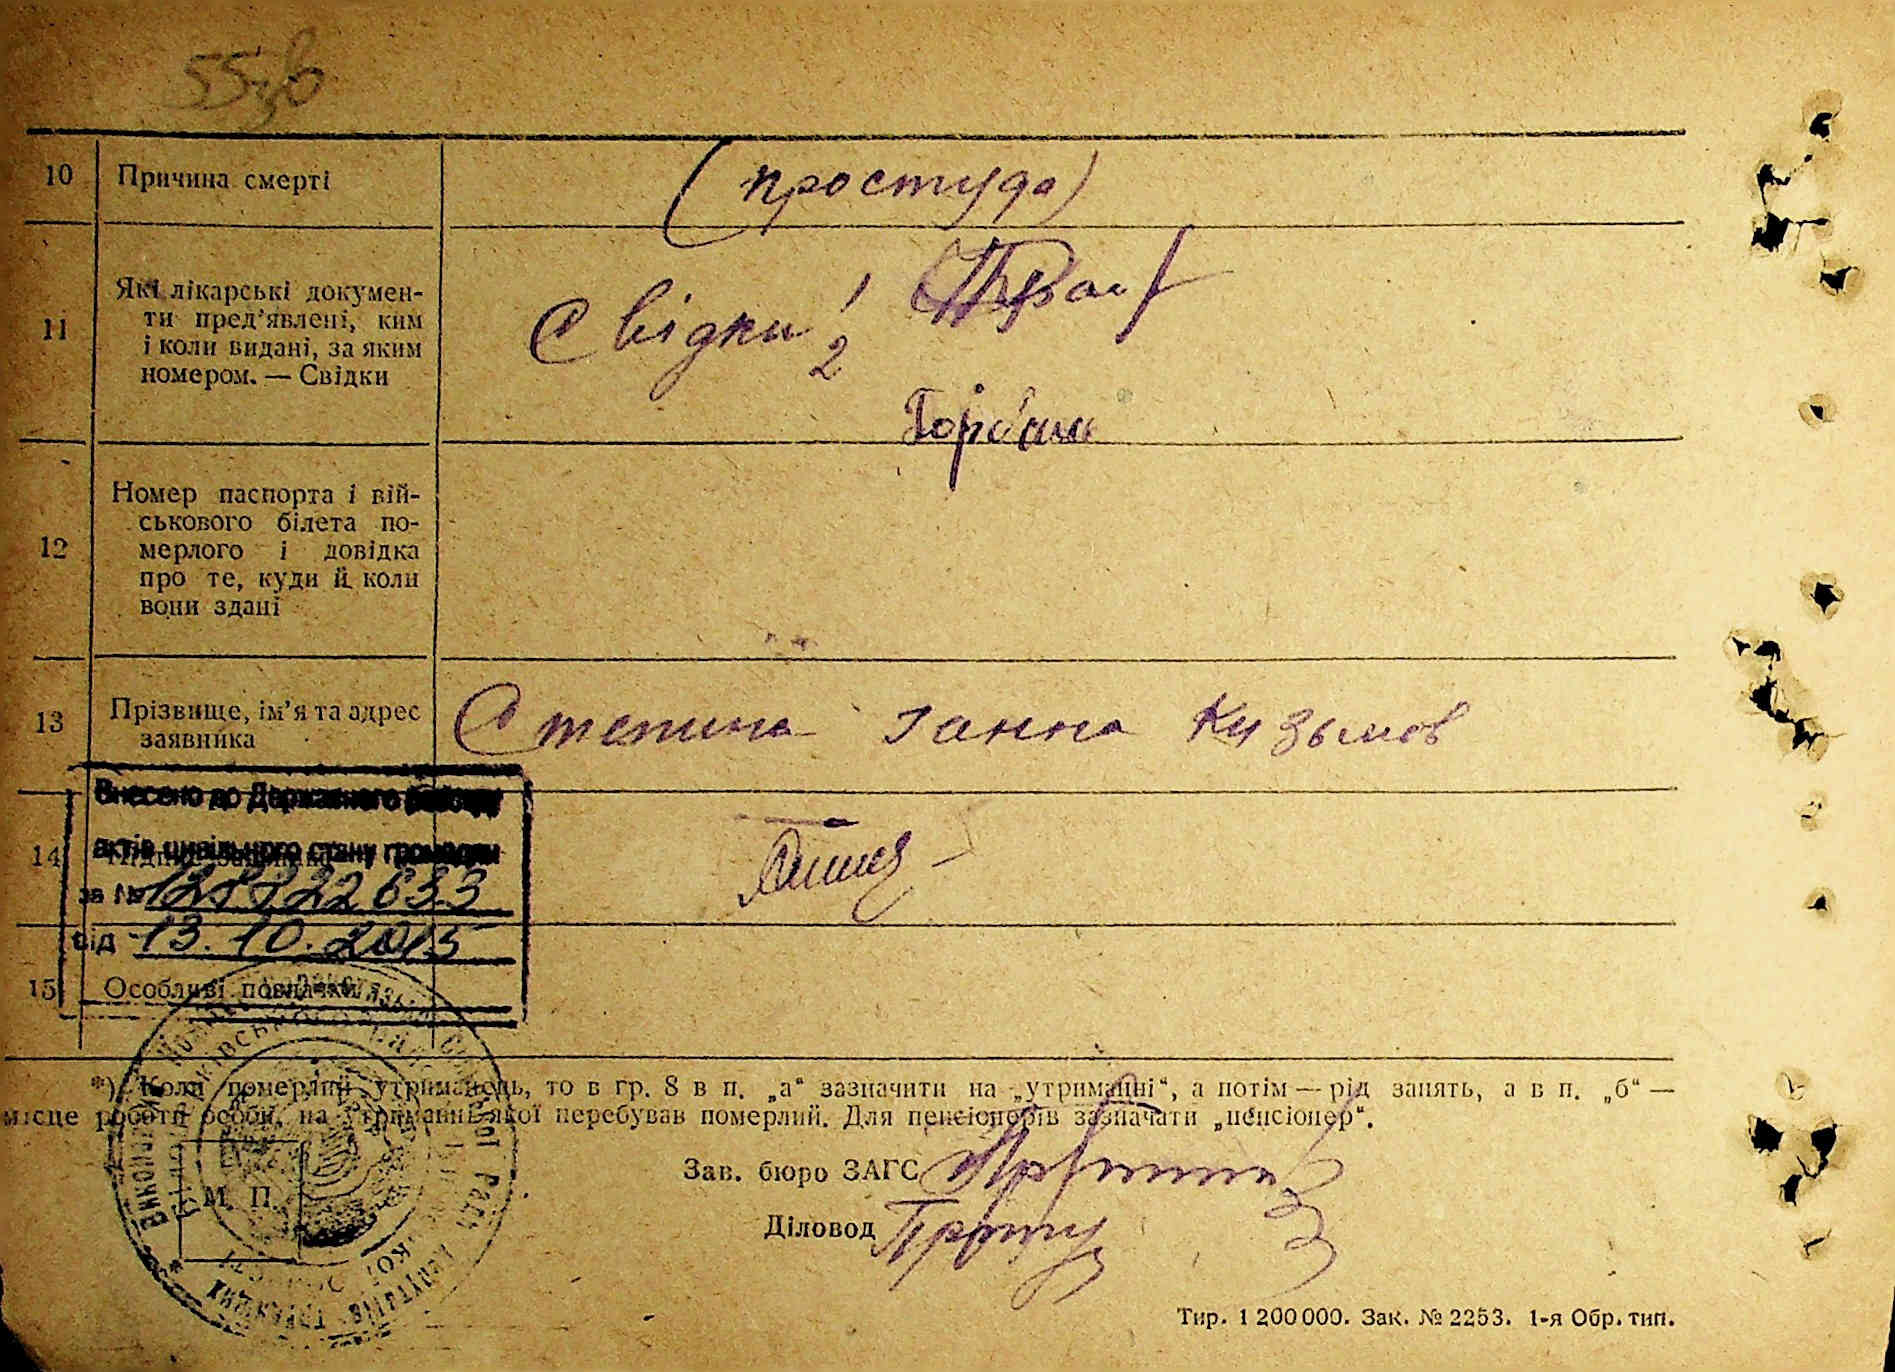 10 Причина смерті (простуда)
11 Які лікарські докумен-
ти пред'явлені, ким
і коли видані, за яким
номером. — Свідки
Свідки 1
2
Горбань
12 Номер паспорта і вій-
ськового білета по-
мерлого і довідка
про те, куди й коли
вони здані
13 Прізвище, ім'я та адрес
заявника
Степина Ганна Кузьмов
Внесено до Державного реєстру
14 актів цивільного стану громадян
за № 128822633
від 13.10.2015
15 Особливі познач
*) Коли померлий утриманець, то в гр. 8 в п. „а“ зазначити на „утриманні“, а потім — рід занять, а в п. „б“ —
місце роботи особи, на утриманні якої перебував померлий. Для пенсіонерів зазначати „пенсіонер“.
Зав. бюро ЗАГС
М. П.
Діловод
Тир. 1 200 000. Зак. № 2253. 1-я Обр. тип.